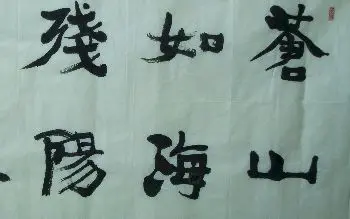 蒼山
如海
殘陽